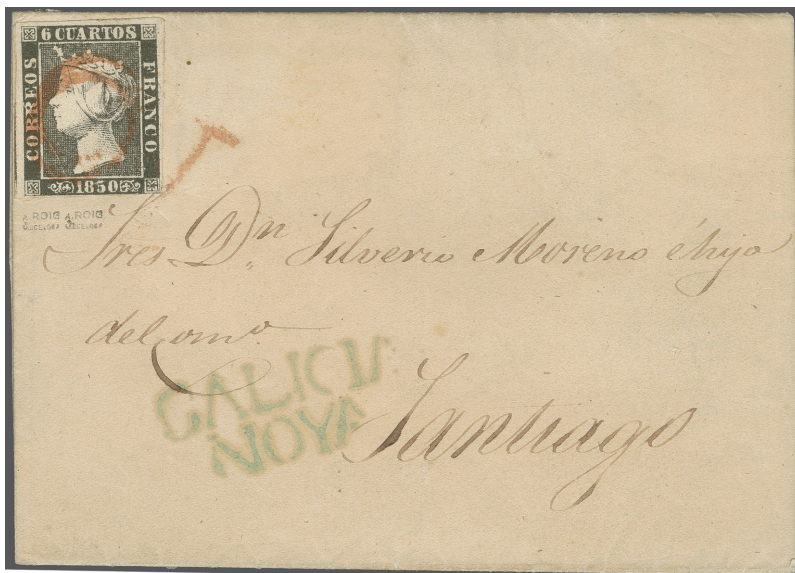 6 CUARTOS
CORREOS
FRANCO
1850
A.ROIG A.ROIG
Sres. Dn. Silverio Moreno é hijo
del como.
Santiago
GALICIA
NOYA